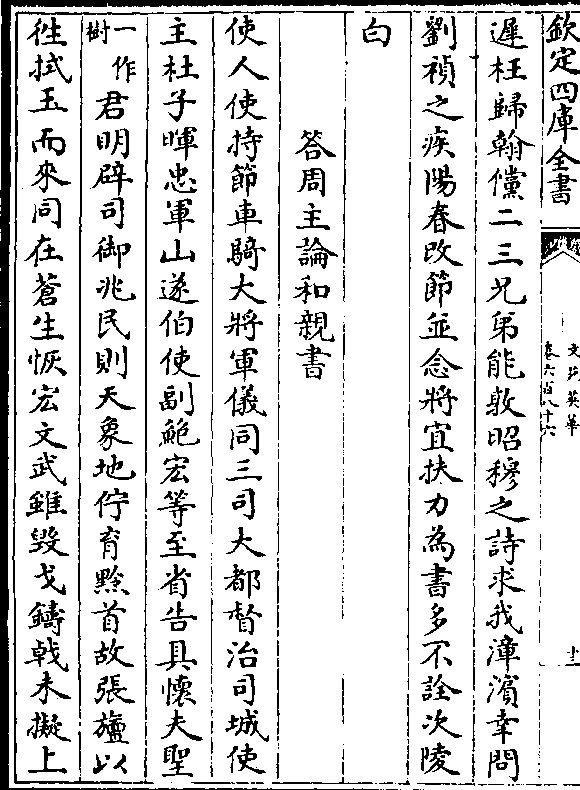 欽定四庫全書
文苑英華
卷六百八十六
十二
遲枉歸翰儻二三兄弟能敦昭穆之詩求我漳濱幸問
劉禎之疾陽春改節並念將宜扶力為書多不詮次陵
白
答周主論和親書
使人使持節車騎大將軍儀同三司大都督治司城使
主杜子暉忠軍山遂伯使副鮑宏等至省告具懷夫聖
一作樹君明辟司御兆民則天象地佇育黔首故張旜以
徃拭玉而來同在蒼生恢宏文武雖毀戈鑄戟未擬上